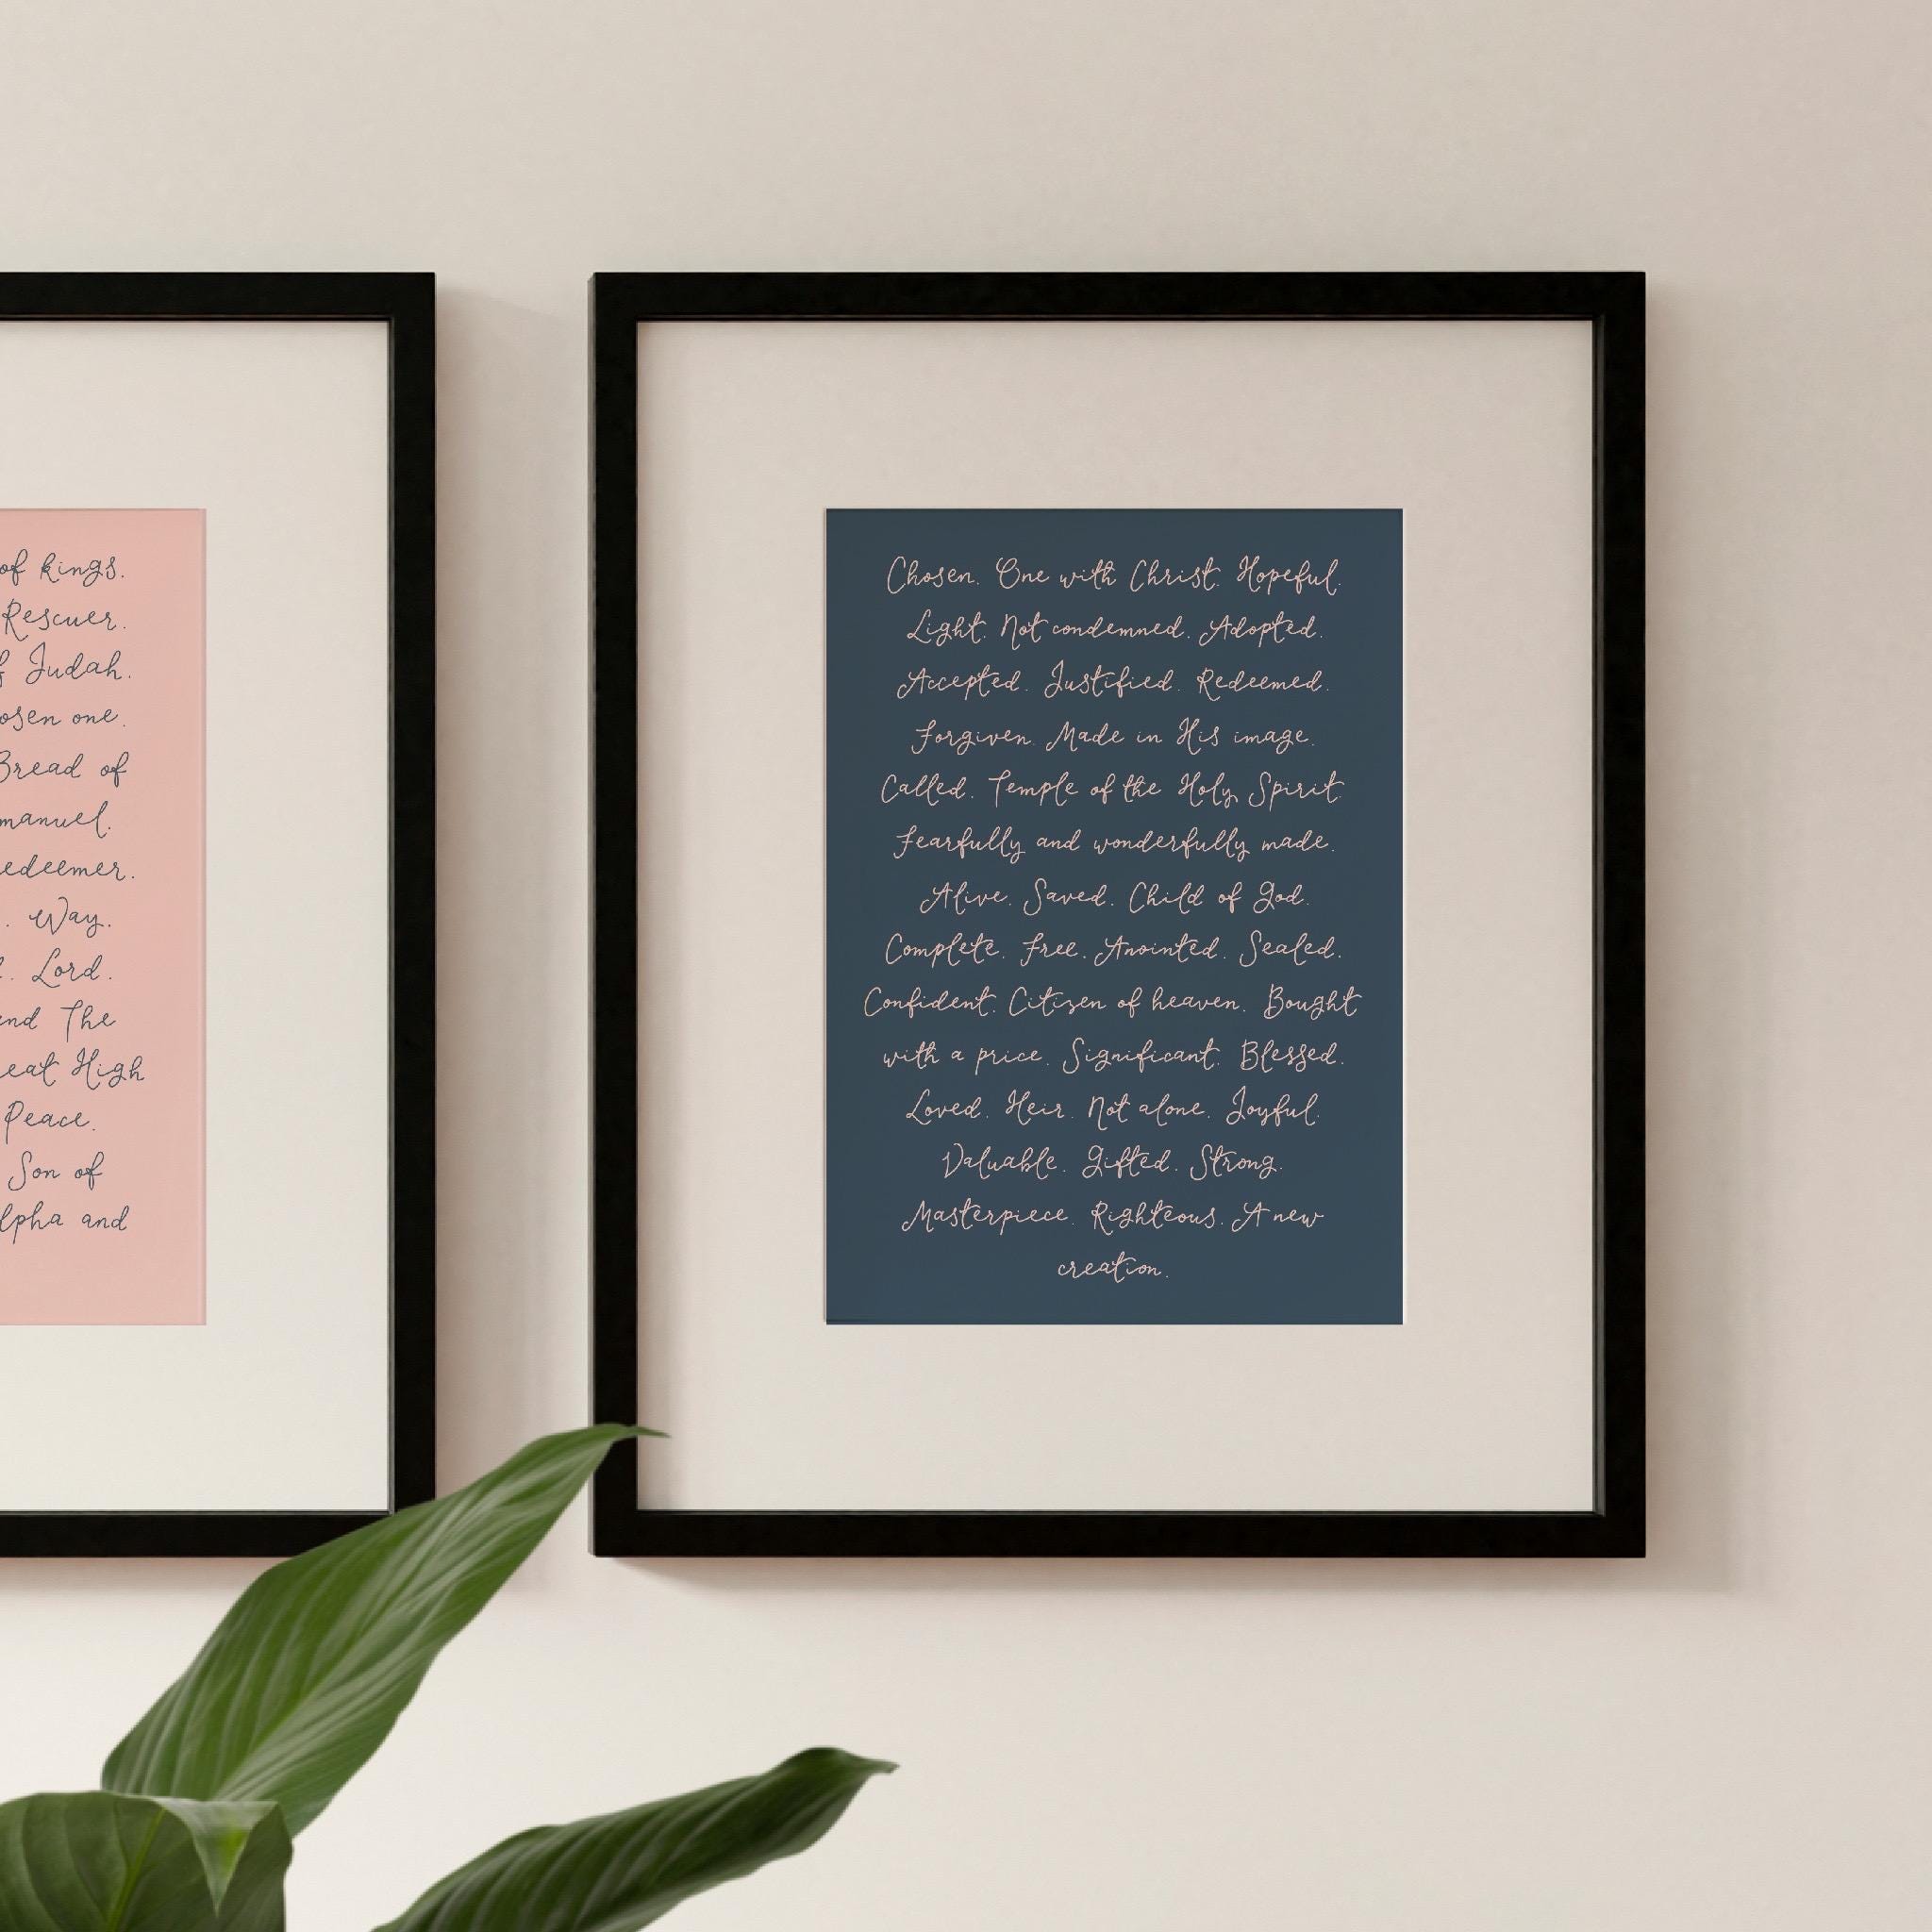 of kings.
Rescuer.
Judah.
one.
Bread of
Way.
Lord.
The
High
Peace.
Son of
and
Chosen. One with Christ. Hopeful.
Light. Not condemned. Adopted.
Accepted. Justified. Redeemed.
Forgiven. Made in His image.
Called. Temple of the Holy Spirit.
Fearfully and wonderfully made.
Alive. Saved. Child of God.
Complete. Free. Anointed. Sealed.
Confident. Citizen of heaven. Bought
with a price. Significant. Blessed.
Loved. Heir. Not alone. Joyful.
Valuable. Gifted. Strong.
Masterpiece. Righteous. A new
creation.